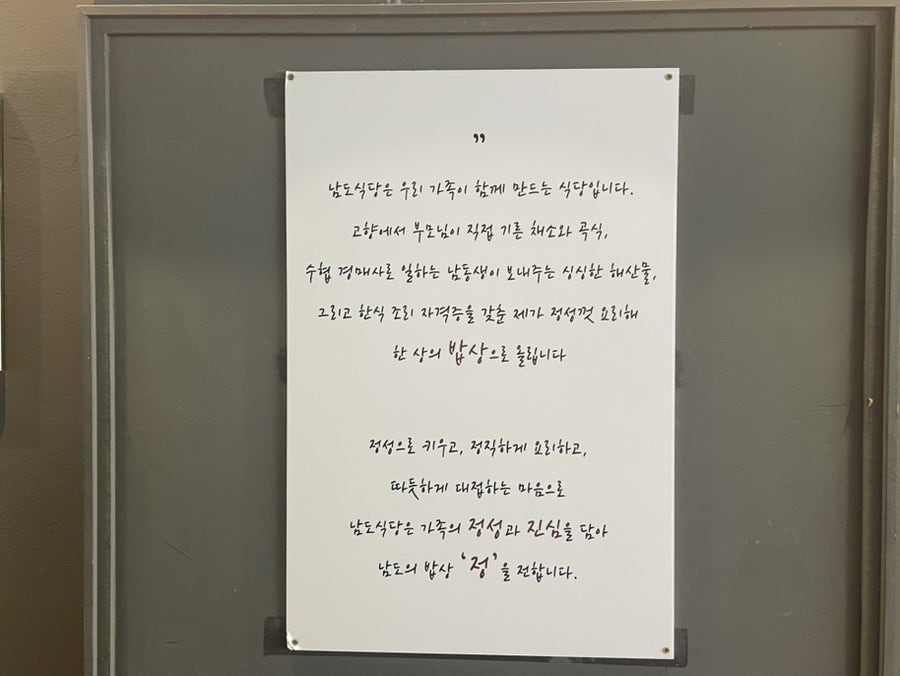 ”
남도식당은 우리 가족이 함께 만드는 식당입니다.
고향에서 부모님이 직접 기른 채소와 곡식,
수협 경매사로 일하는 남동생이 보내주는 싱싱한 해산물,
그리고 한식 조리 자격증을 갖춘 제가 정성껏 요리해
한 상의 밥상으로 올립니다
정성으로 키우고, 정직하게 요리하고,
따듯하게 대접하는 마음으로
남도식당은 가족의 정성과 진심을 담아
남도의 밥상 ‘정’을 전합니다.